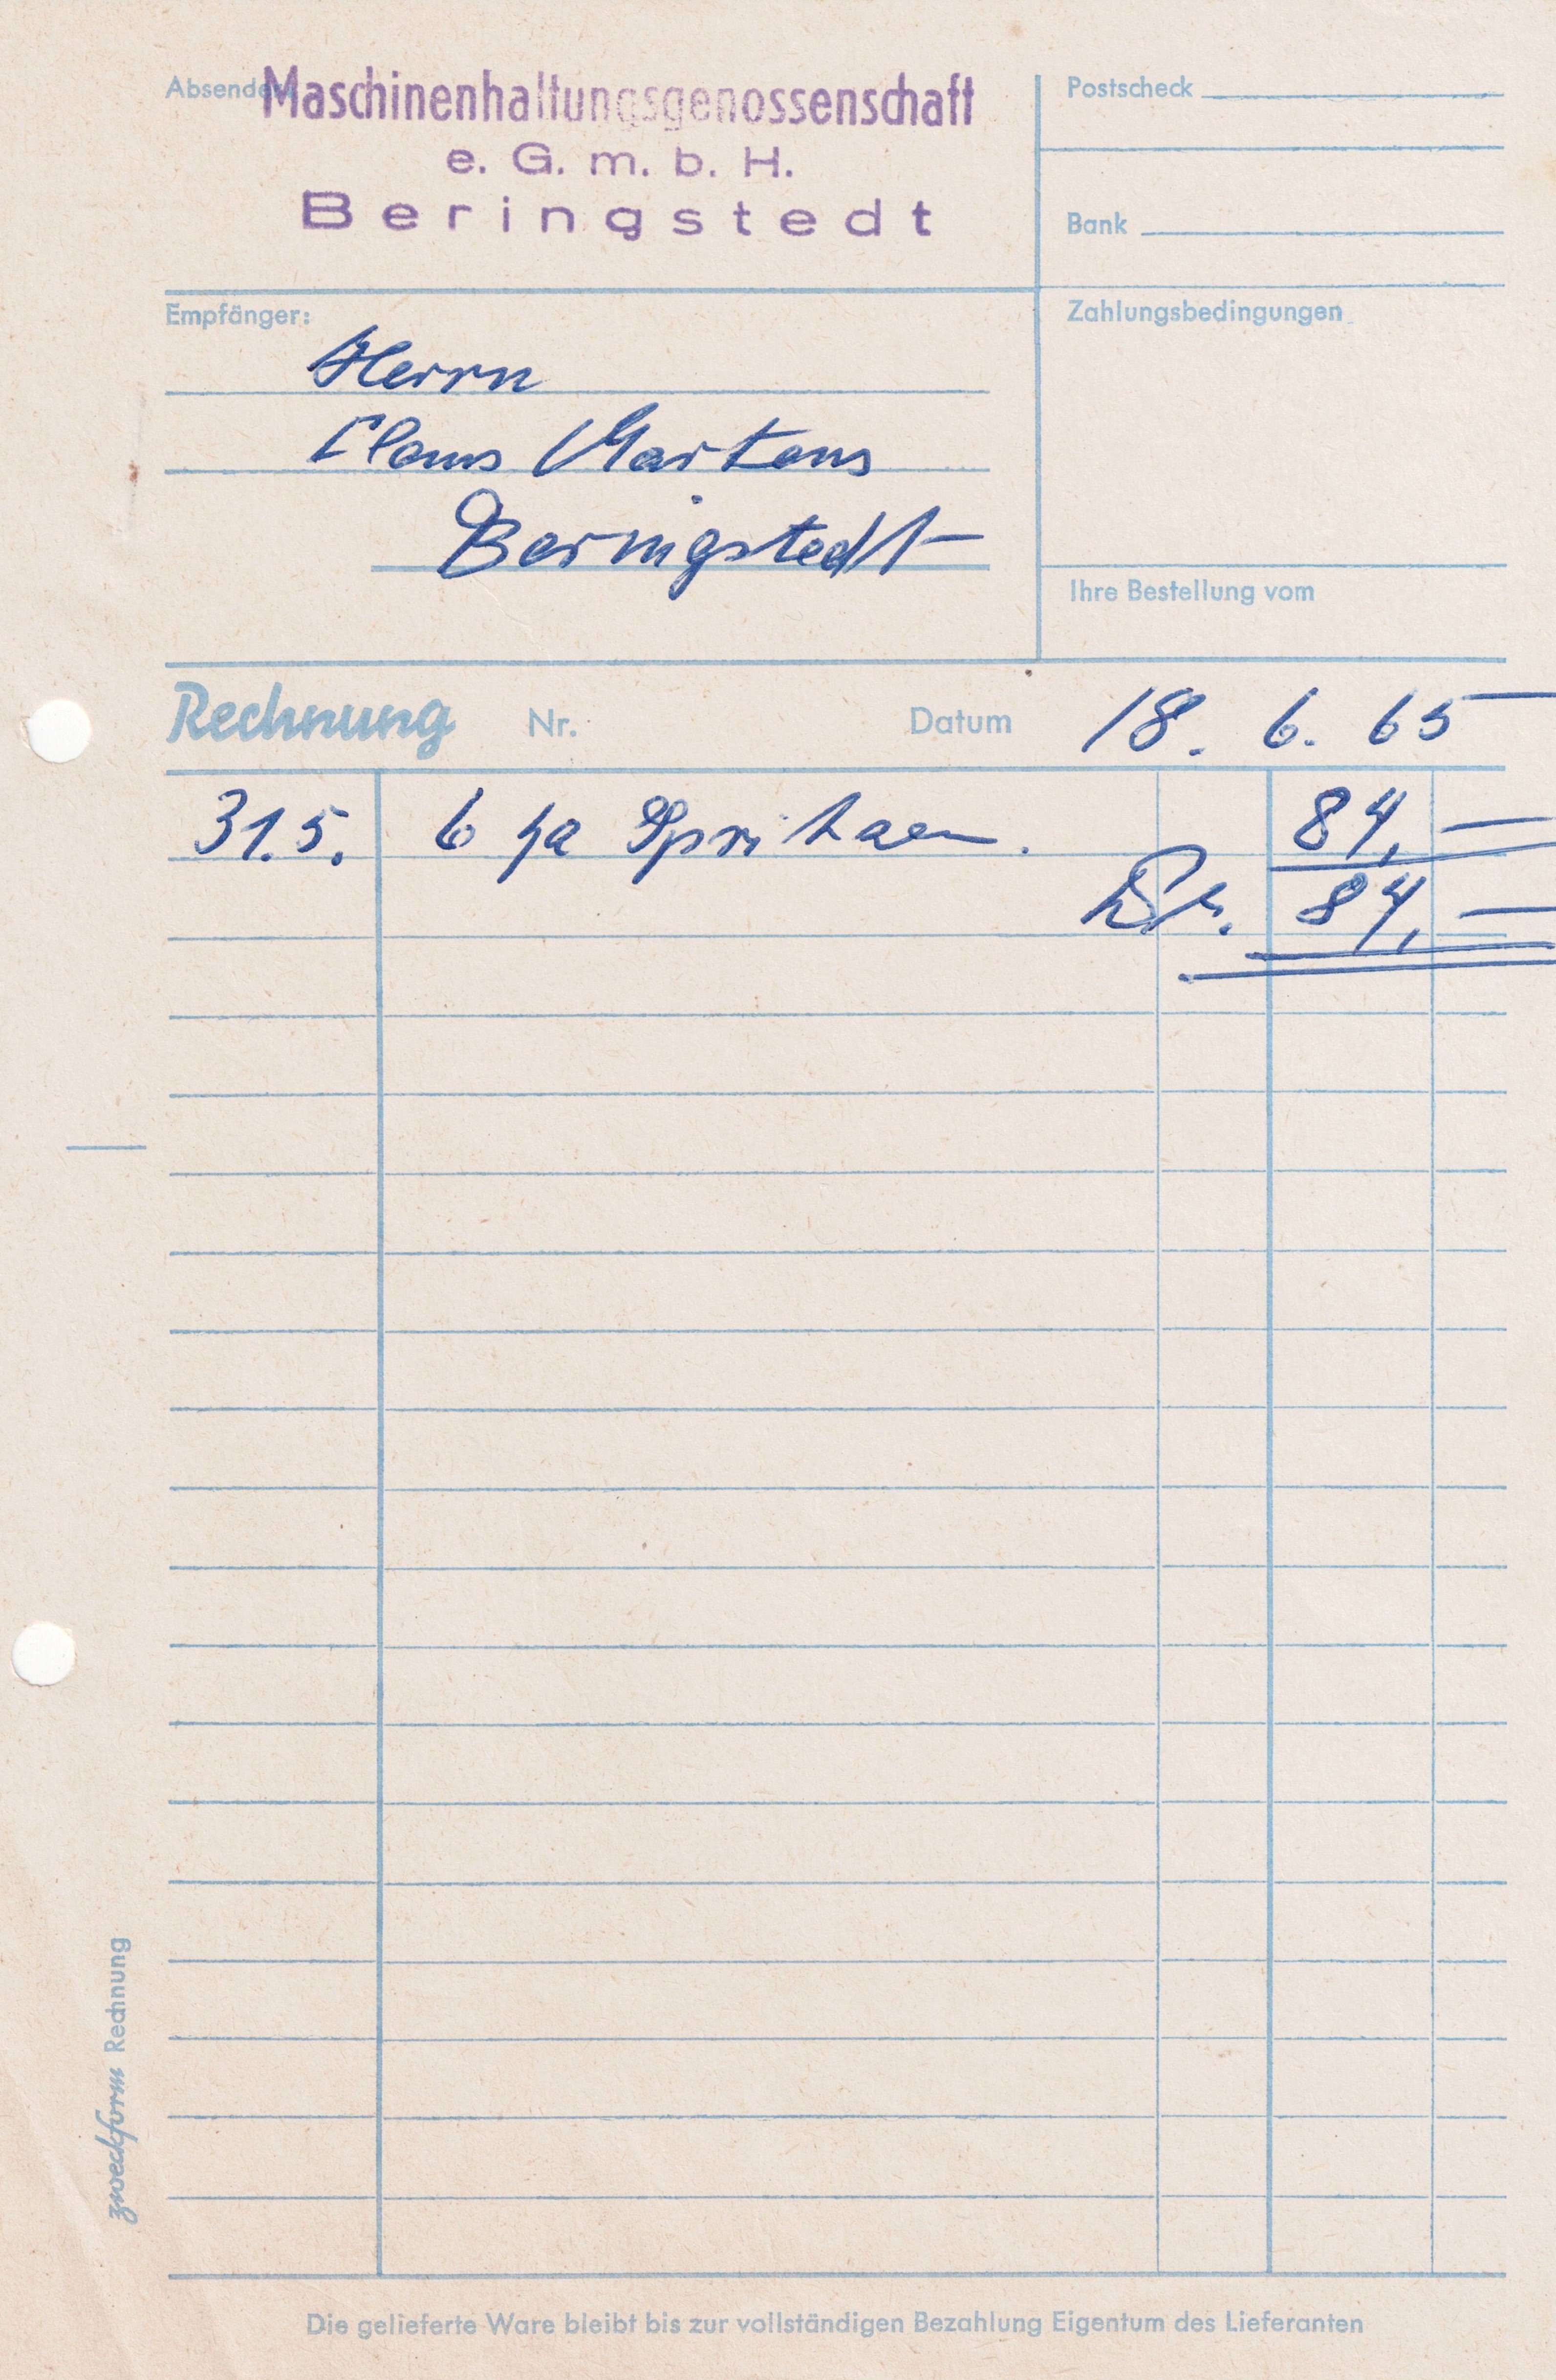 Absender
Maschinenhaltungsgenossenschaft
e. G. m. b. H.
Beringstedt
Postscheck
Bank
Empfänger:
Herrn
Claus Martens
Beringstedt
Zahlungsbedingungen
Ihre Bestellung vom
Rechnung Nr. Datum 18. 6. 65
31.5. 6 ha Spritzen. 84,—
84,—
zweckform Rechnung
Die gelieferte Ware bleibt bis zur vollständigen Bezahlung Eigentum des Lieferanten